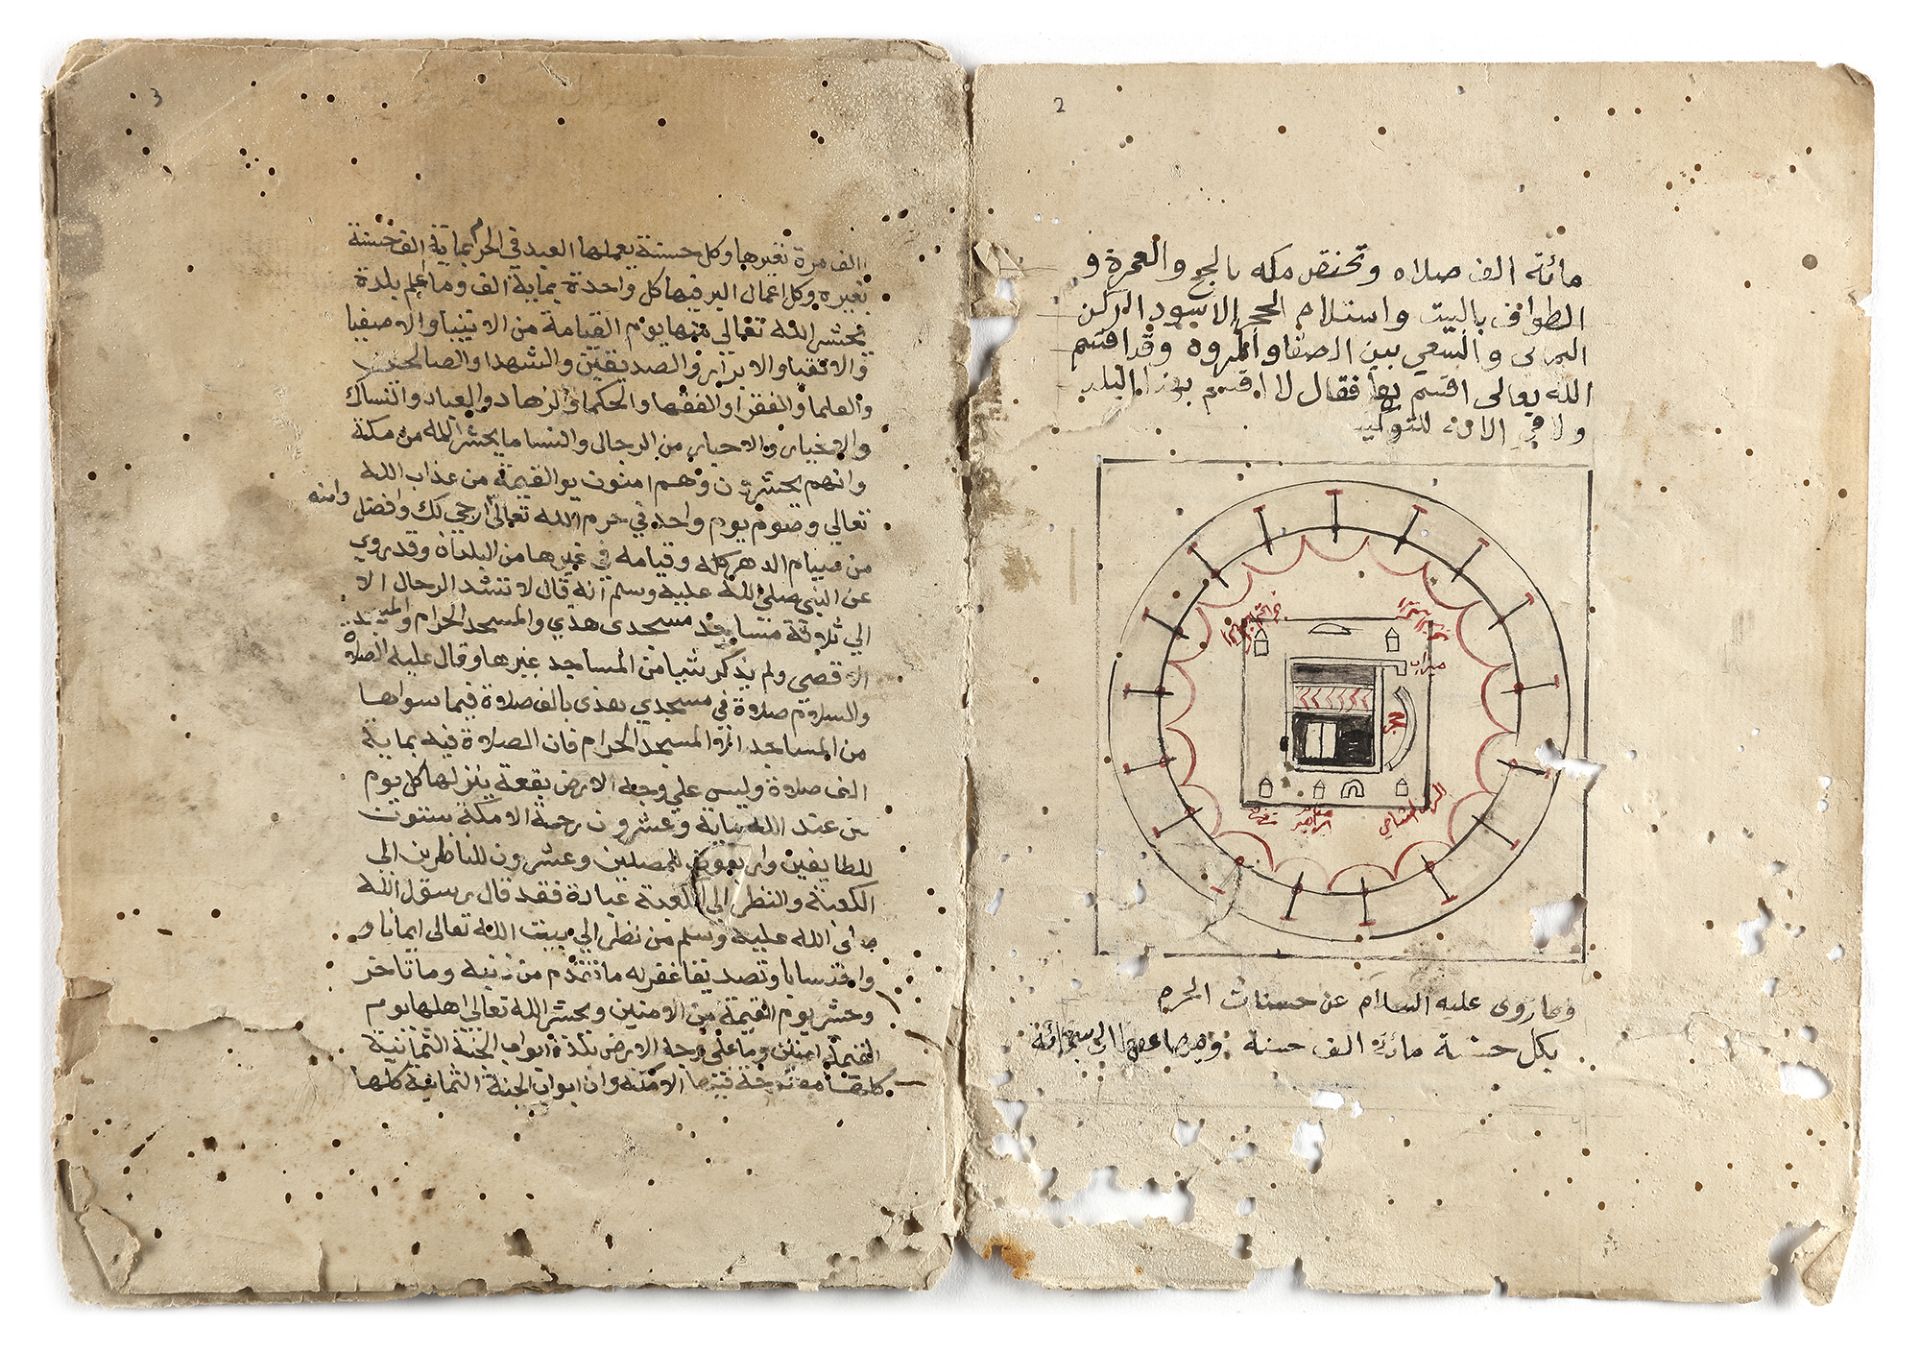 2
مائة الف صلاه وتختص مكه بالحج والعمرة و
الطواف بالبيت واستلام الحجر الاسود الركن
اليمانى والسعي بين الصفا والمروه وقد اقسم
الله تعالى اقسم بها فقال لا اقسم بهذا البلد
ولا في الا للتوكيد
ميزاب
حجر
الركن الشامي
مقام ابراهيم
وما روى عليه السلام عن حسنات الحرم
بكل حسنة مائة الف حسنة
3
الف مرة بغيرها وكل حسنة يعملها العبد في الحرم بماية الف حسنة
بغيره وكل اعمال البر فيها كل واحدة بماية الف وما اعلم بلدة
يحشر الله تعالى منها يوم القيامة من الانبيا والاصفيا
والاتقيا والابرار والصديقين والشهدا والصالحين
والعلما والفقرا والفقها والحكما والزهاد والعباد والنساك
والاخيار والاحبار من الرجال والنسا ما يحشر الله من مكة
وانهم يحشرون وهم امنون يوم القيمة من عذاب الله
تعالي وصوم يوم واحد في حرم الله تعالى ارجى لك وافضل وامنه
من صيام الدهر كله وقيامه في غيرها من البلدان وقد روي
عن النبي صلى الله عليه وسلم انه قال لا تشد الرحال الا
الي ثلاثة مساجد مسجدى هذي والمسجد الحرام والمسجد
الاقصي ولم يذكر شيا من المساجد غيرها وقال عليه الصلاة
والسلام صلاة في مسجدي هذى بالف صلاة فيما سواها
من المساجد الا المسجد الحرام فان الصلاة فيه بماية
الف صلاة وليس علي وجه الارض بقعة ينزلها كل يوم
من عند الله ماية وعشرون رحمة الا مكة ستون
للطايفين واربعون للمصلين وعشرون للناظرين الى
الكعبة والنظر الي الكعبة عبادة فقد قال رسول الله
صلى الله عليه وسلم من نظر الي بيت الله تعالى ايمانا و
واحتسابا وتصديقا غفر له ما تقدم من ذنبه وما تاخر
وحشر يوم القيمة من الامنين ويحشر الله تعالى اهلها يوم
القيمة امنين وما على وجه الارض بلدة ابواب الجنة الثمانية
كلها مفتوحة فيها الا مكة وان ابواب الجنة الثمانية كلها